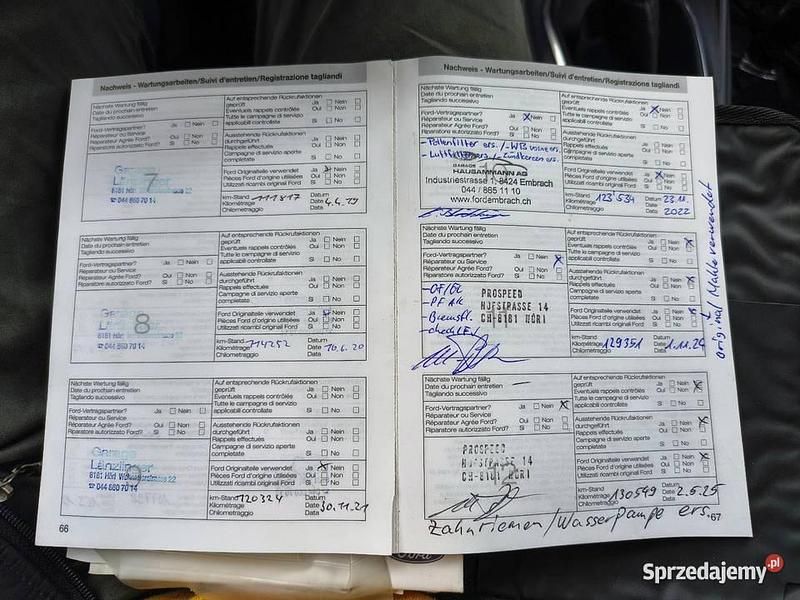 Nachweis - Wartungsarbeiten/Suivi d'entretien/Registrazione tagliandi
Nächste Wartung fällig
Date du prochain entretien
Tagliando successivo
Ford-Vertragspartner? Ja Nein
Réparateur ou Service
Réparateur Agrée Ford? Oui Non
Riparatore autorizzato Ford? Si No
Auf entsprechende Rückrufaktionen
geprüft Ja Nein
Eventuels rappels contrôlés Oui Non
Tutte le campagne di servizio
applicabili controllate Si No
Ausstehende Rückrufaktionen
durchgeführt Ja Nein
Rappels effectués Oui Non
Campagne di servizio aperte
completate Si No
Ford Originalteile verwendet Ja Nein
Pièces Ford d'origine utilisées Oui Non
Utilizzati ricambi originali Ford Si No
7
8181 Höri
☎ 044 860 70 14
km-Stand 111817 Datum
Kilométrage Date 4.4.19
Chilometraggio Data
Nächste Wartung fällig
Date du prochain entretien
Tagliando successivo
Ford-Vertragspartner? Ja Nein
Réparateur ou Service
Réparateur Agrée Ford? Oui Non
Riparatore autorizzato Ford? Si No
Auf entsprechende Rückrufaktionen
geprüft Ja Nein
Eventuels rappels contrôlés Oui Non
Tutte le campagne di servizio
applicabili controllate Si No
Ausstehende Rückrufaktionen
durchgeführt Ja Nein
Rappels effectués Oui Non
Campagne di servizio aperte
completate Si No
Ford Originalteile verwendet Ja Nein
Pièces Ford d'origine utilisées Oui Non
Utilizzati ricambi originali Ford Si No
8
☎ 044 860 70 14
km-Stand 114252 Datum
Kilométrage Date 10.6.20
Chilometraggio Data
Nächste Wartung fällig
Date du prochain entretien
Tagliando successivo
Ford-Vertragspartner? Ja Nein
Réparateur ou Service
Réparateur Agrée Ford? Oui Non
Riparatore autorizzato Ford? Si No
Auf entsprechende Rückrufaktionen
geprüft Ja Nein
Eventuels rappels contrôlés Oui Non
Tutte le campagne di servizio
applicabili controllate Si No
Ausstehende Rückrufaktionen
durchgeführt Ja Nein
Rappels effectués Oui Non
Campagne di servizio aperte
completate Si No
Ford Originalteile verwendet Ja Nein
Pièces Ford d'origine utilisées Oui Non
Utilizzati ricambi originali Ford Si No
Garage
Länzlinger
8181 Höri
☎ 044 860 70 14
km-Stand 120324 Datum
Kilométrage Date 30.11.21
Chilometraggio Data
66
Nachweis - Wartungsarbeiten/Suivi d'entretien/Registrazione tagliandi
Nächste Wartung fällig
Date du prochain entretien
Tagliando successivo
Ford-Vertragspartner? Ja Nein
Réparateur ou Service
Réparateur Agrée Ford? Oui Non
Riparatore autorizzato Ford? Si No
Auf entsprechende Rückrufaktionen
geprüft Ja Nein
Eventuels rappels contrôlés Oui Non
Tutte le campagne di servizio
applicabili controllate Si No
Ausstehende Rückrufaktionen
durchgeführt Ja Nein
Rappels effectués Oui Non
Campagne di servizio aperte
completate Si No
Ford Originalteile verwendet Ja Nein
Pièces Ford d'origine utilisées Oui Non
Utilizzati ricambi originali Ford Si No
- Pollenfilter ers.
- Luftfilter ers. /- Zündkerzen ers.
GARAGE
HAUSAMMANN AG
Industriestrasse 1, 8424 Embrach
044 / 865 11 10
www.fordembrach.ch
km-Stand 123'534 Datum 23.11.
Kilométrage Date 2022
Chilometraggio Data
Nächste Wartung fällig
Date du prochain entretien
Tagliando successivo
Ford-Vertragspartner? Ja Nein
Réparateur ou Service
Réparateur Agrée Ford? Oui Non
Riparatore autorizzato Ford? Si No
Auf entsprechende Rückrufaktionen
geprüft Ja Nein
Eventuels rappels contrôlés Oui Non
Tutte le campagne di servizio
applicabili controllate Si No
Ausstehende Rückrufaktionen
durchgeführt Ja Nein
Rappels effectués Oui Non
Campagne di servizio aperte
completate Si No
Ford Originalteile verwendet Ja Nein
Pièces Ford d'origine utilisées Oui Non
Utilizzati ricambi originali Ford Si No
- Bremsfl.
PROSPEED
HOFSTRASSE 14
CH-8181 HÖRI
km-Stand 129351 Datum
Kilométrage Date 1.11.24
Chilometraggio Data
original Mahle verwendet
Nächste Wartung fällig
Date du prochain entretien
Tagliando successivo
Ford-Vertragspartner? Ja Nein
Réparateur ou Service
Réparateur Agrée Ford? Oui Non
Riparatore autorizzato Ford? Si No
Auf entsprechende Rückrufaktionen
geprüft Ja Nein
Eventuels rappels contrôlés Oui Non
Tutte le campagne di servizio
applicabili controllate Si No
Ausstehende Rückrufaktionen
durchgeführt Ja Nein
Rappels effectués Oui Non
Campagne di servizio aperte
completate Si No
Ford Originalteile verwendet Ja Nein
Pièces Ford d'origine utilisées Oui Non
Utilizzati ricambi originali Ford Si No
PROSPEED
HOFSTRASSE 14
CH-8181 HÖRI
km-Stand 130549 Datum
Kilométrage Date 2.5.25
Chilometraggio Data
Zahnriemen/Wasserpumpe ers.
67
Sprzedajemy.pl